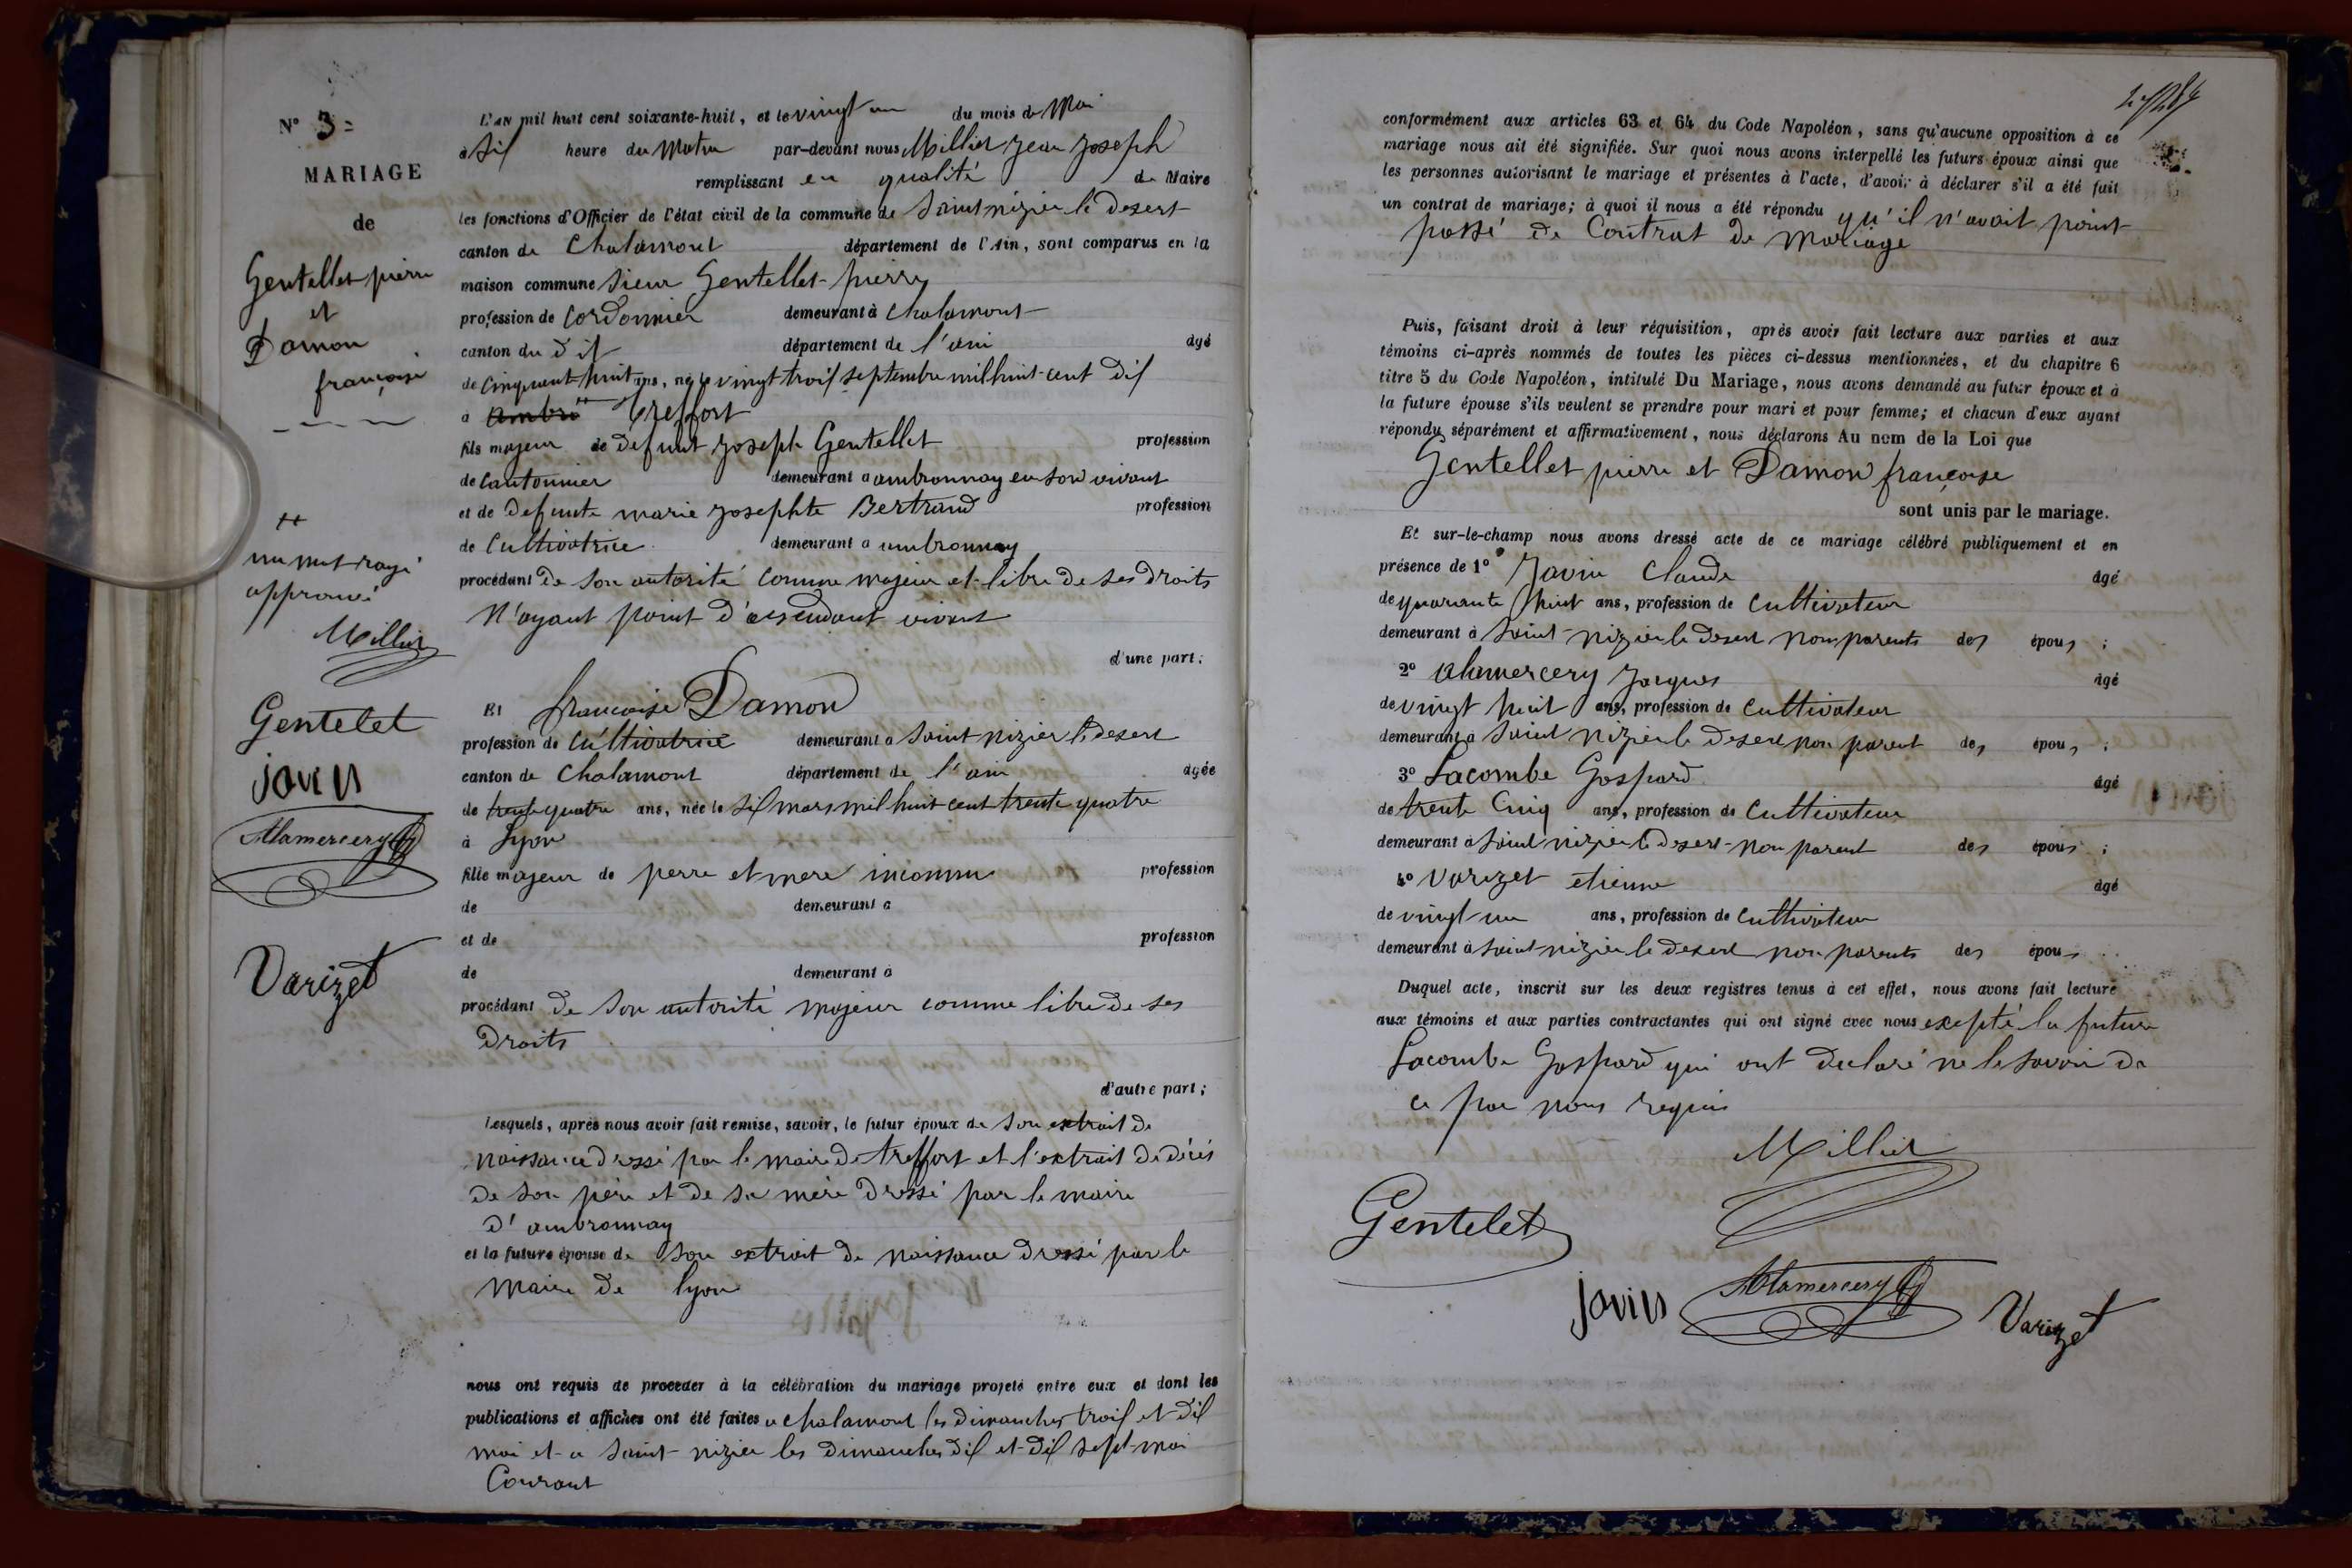 N° 3=
MARIAGE
de
Gentellet pierre
et
Damon
françoise
L'AN mil huit cent soixante-huit, et le vingt un du mois de Mai
à Sif heure du Matin par-devant nous Millier jean joseph
remplissant en qualité de Maire
les fonctions d'Officier de l'état civil de la commune de Saint nizier le desert
canton de Chalamont département de l'Ain, sont comparus en la
maison commune Sieur Gentellet pierre
profession de Cordonnier demeurant à Chalamont
canton du dit département de l'ain âgé
de cinquant huit ans, né le vingt troif septembre mil huit cent dif
à ambro ++ treffort
fils majeur de defunt joseph Gentellet profession
de Cantonnier demeurant à ambronnay en son vivant
et de defunte marie josephte Bertrand profession
de Cultivatrice demeurant à ambronnay
procédant de son autorité comme majeur et libre de ses droits
N'ayant point d'assendant vivant
d'une part;
++
un mot rayé
approuvé
Millier
Gentelet
jovin
Alamercery
Varizet
Et françoise Damon
profession de Cultivatrice demeurant à Saint nizier le desert
canton de Chalamont département de l'ain âgée
de trente quatre ans, née le Sif mars mil huit cent trente quatre
à Lyon
fille majeur de perre et mere inconnu profession
de demeurant à
et de profession
de demeurant à
procédant de son autorité majeur comme libre de ses
droits
d'autre part;
Lesquels, après nous avoir fait remise, savoir, le futur époux de son extrait de
naissance dressé par le maire de treffort et l'extrait de décés
de son père et de sa mère dressé par le maire
d'ambronnay
et la future épouse de son extrait de naissance dressé par le
maire de lyon
nous ont requis de procéder à la célébration du mariage projeté entre eux et dont les
publications et affiches ont été faites a chalamont les dimanches troif et dif
mai et a Saint-nizier les dimanches dif et dif sept mai
Courant
conformément aux articles 63 et 64 du Code Napoléon, sans qu'aucune opposition à ce
mariage nous ait été signifiée. Sur quoi nous avons interpellé les futurs époux ainsi que
les personnes autorisant le mariage et présentes à l'acte, d'avoir à déclarer s'il a été fait
un contrat de mariage; à quoi il nous a été répondu qu'il n'avait point
passé de Contrat de mariage
Puis, faisant droit à leur réquisition, après avoir fait lecture aux parties et aux
témoins ci-après nommés de toutes les pièces ci-dessus mentionnées, et du chapitre 6
titre 5 du Code Napoléon, intitulé Du Mariage, nous avons demandé au futur époux et à
la future épouse s'ils veulent se prendre pour mari et pour femme; et chacun d'eux ayant
répondu séparément et affirmativement, nous déclarons Au nom de la Loi que
Gentellet pierre et Damon françoise
sont unis par le mariage.
Et sur-le-champ nous avons dressé acte de ce mariage célébré publiquement et en
présence de 1° Jovin Claude âgé
de quarante huit ans, profession de Cultivateur
demeurant à Saint-nizier le desert non parents des époux;
2° Alamercery jacques âgé
de vingt huit ans, profession de Cultivateur
demeurant à Saint nizier le desert non parent des époux;
3° Lacombe Gaspard âgé
de trente Cinq ans, profession de Cultivateur
demeurant à Saint nizier le desert non parent des époux;
4° Varizet etienne âgé
de vingt un ans, profession de Cultivateur
demeurant à Saint-nizier le desert non parents des époux
Duquel acte, inscrit sur les deux registres tenus à cet effet, nous avons fait lecture
aux témoins et aux parties contractantes qui ont signé avec nous excepté la future
Lacombe Gaspard qui ont declaré ne le savoir de
ce par nous requis
Millier
Gentelet
jovin
Alamercery
Varizet